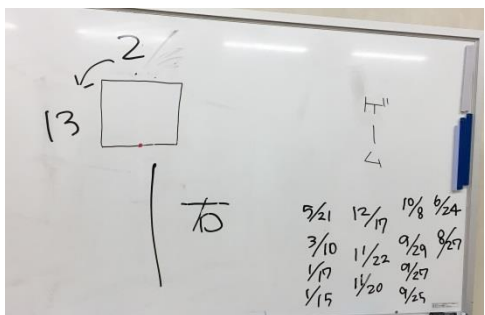 2
13
ゲーム
5/21 12/17 10/8 6/24
3/10 11/22 9/29 8/27
1/17 11/20 9/27
1/15 9/25